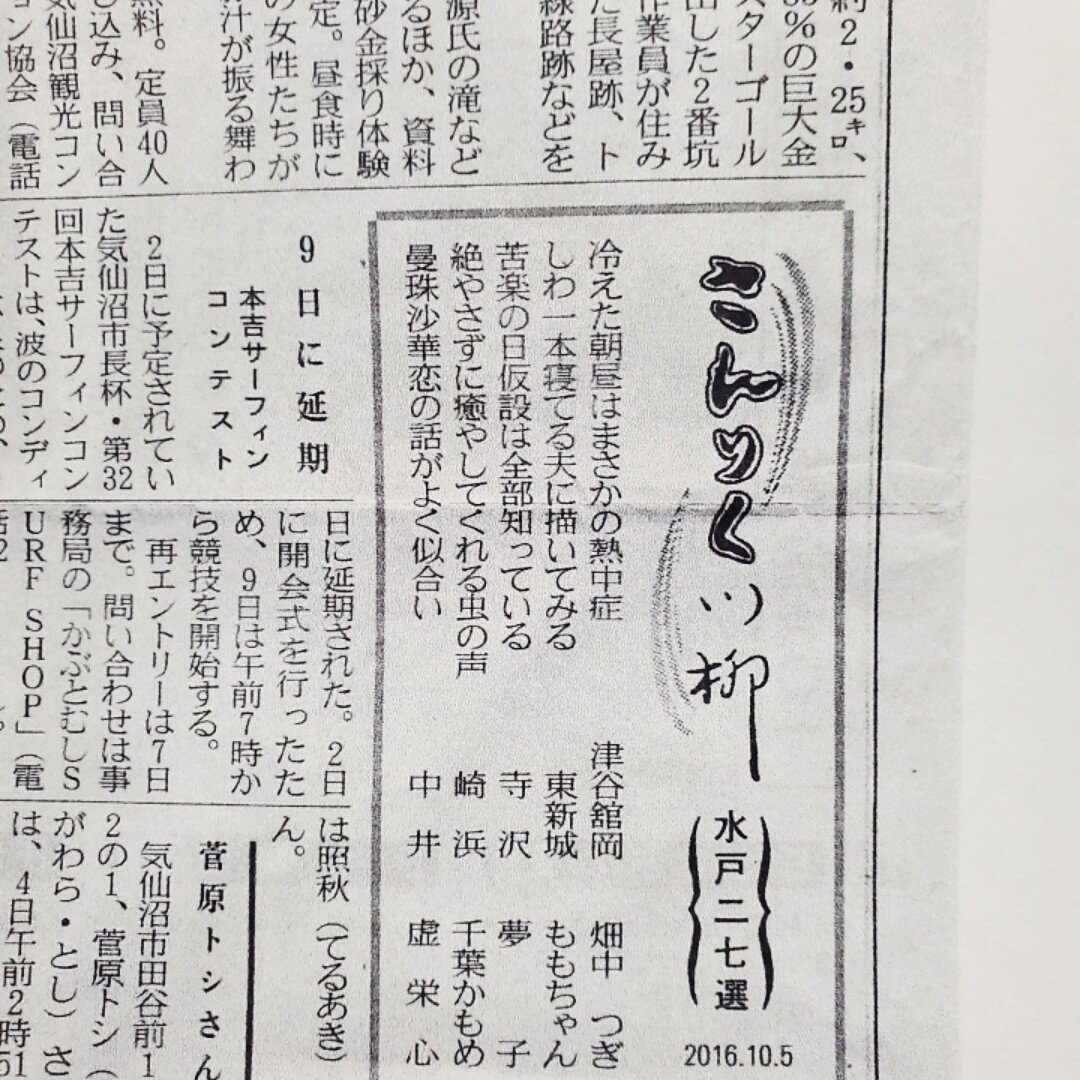 約2・25㌔、
%の巨大金
スターゴール
出した2番坑
作業員が住み
た長屋跡、ト
線路跡などを
源氏の滝など
るほか、資料
砂金採り体験
定。昼食時に
の女性たちが
汁が振る舞わ
無料。定員40人
し込み、問い合
気仙沼観光コン
ョン協会(電話
さんりく川柳
水戸二七選
2016.10.5
冷えた朝昼はまさかの熱中症 津谷舘岡 畑中つぎ
しわ一本寝てる夫に描いてみる 東新城 ももちゃん
苦楽の日仮設は全部知っている 寺沢 夢子
絶やさずに癒やしてくれる虫の声 崎浜 千葉かもめ
曼珠沙華恋の話がよく似合い 中井 虚栄心
9日に延期
本吉サーフィン
コンテスト
2日に予定されてい
た気仙沼市長杯・第32
回本吉サーフィンコン
テストは、波のコンディ
日に延期された。2日
に開会式を行ったた
め、9日は午前7時か
ら競技を開始する。
再エントリーは7日
まで。問い合わせは事
務局の「かぶとむしS
URF SHOP」(電
は照秋(てるあき)
ん。
菅原トシさん
気仙沼市田谷前1
2の1、菅原トシ(
がわら・とし)さ
は、4日午前2時51